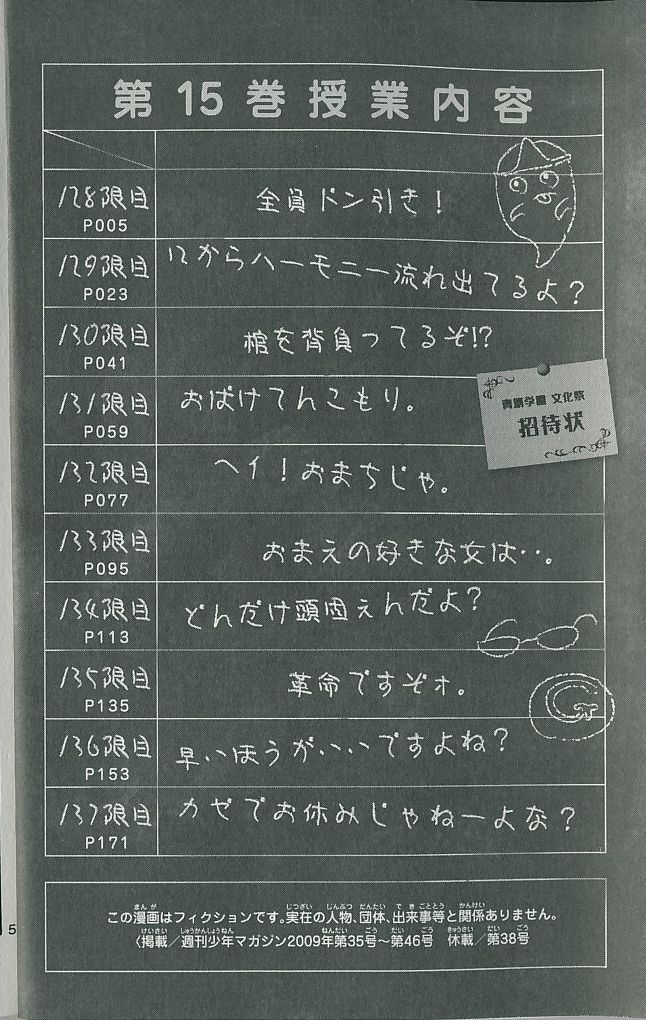 第15巻授業内容
128限目
P005
全員ドン引き!
129限目
P023
口からハーモニー流れ出てるよ?
130限目
P041
棺を背負ってるぞ!?
131限目
P059
おばけてんこもり。
学園 文化祭
招待状
132限目
P077
ヘイ!おまちじゃ。
133限目
P095
おまえの好きな女は‥。
134限目
P113
どんだけ頭固えんだよ?
135限目
P135
革命ですぞォ。
136限目
P153
早いほうがいいですよね?
137限目
P171
カゼでお休みじゃねーよな?
この漫画はフィクションです。実在の人物、団体、出来事等と関係ありません。
〈掲載/週刊少年マガジン2009年第35号~第46号 休載/第38号
5